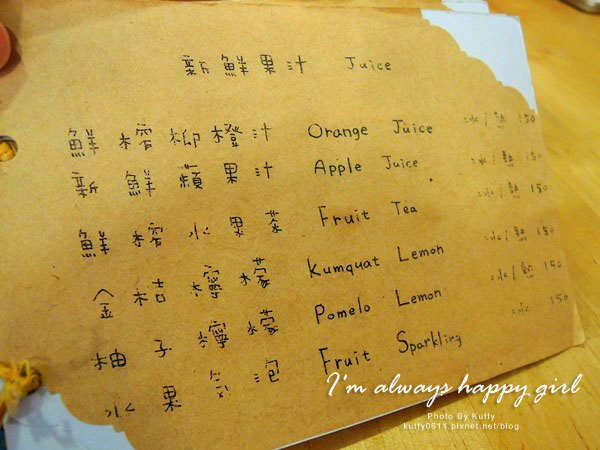 新鮮果汁 Juice
鮮榨柳橙汁 Orange Juice 冰/熱 150
新鮮蘋果汁 Apple Juice 冰/熱 150
鮮榨水果茶 Fruit Tea 冰/熱 150
金桔檸檬 Kumquat Lemon 冰/熱 150
柚子檸檬 Pomelo Lemon 冰/熱 150
水果氣泡 Fruit Sparkling 冰 150
I'm always happy girl
Photo By Kuffy
kuffy0611.pixnet.net/blog